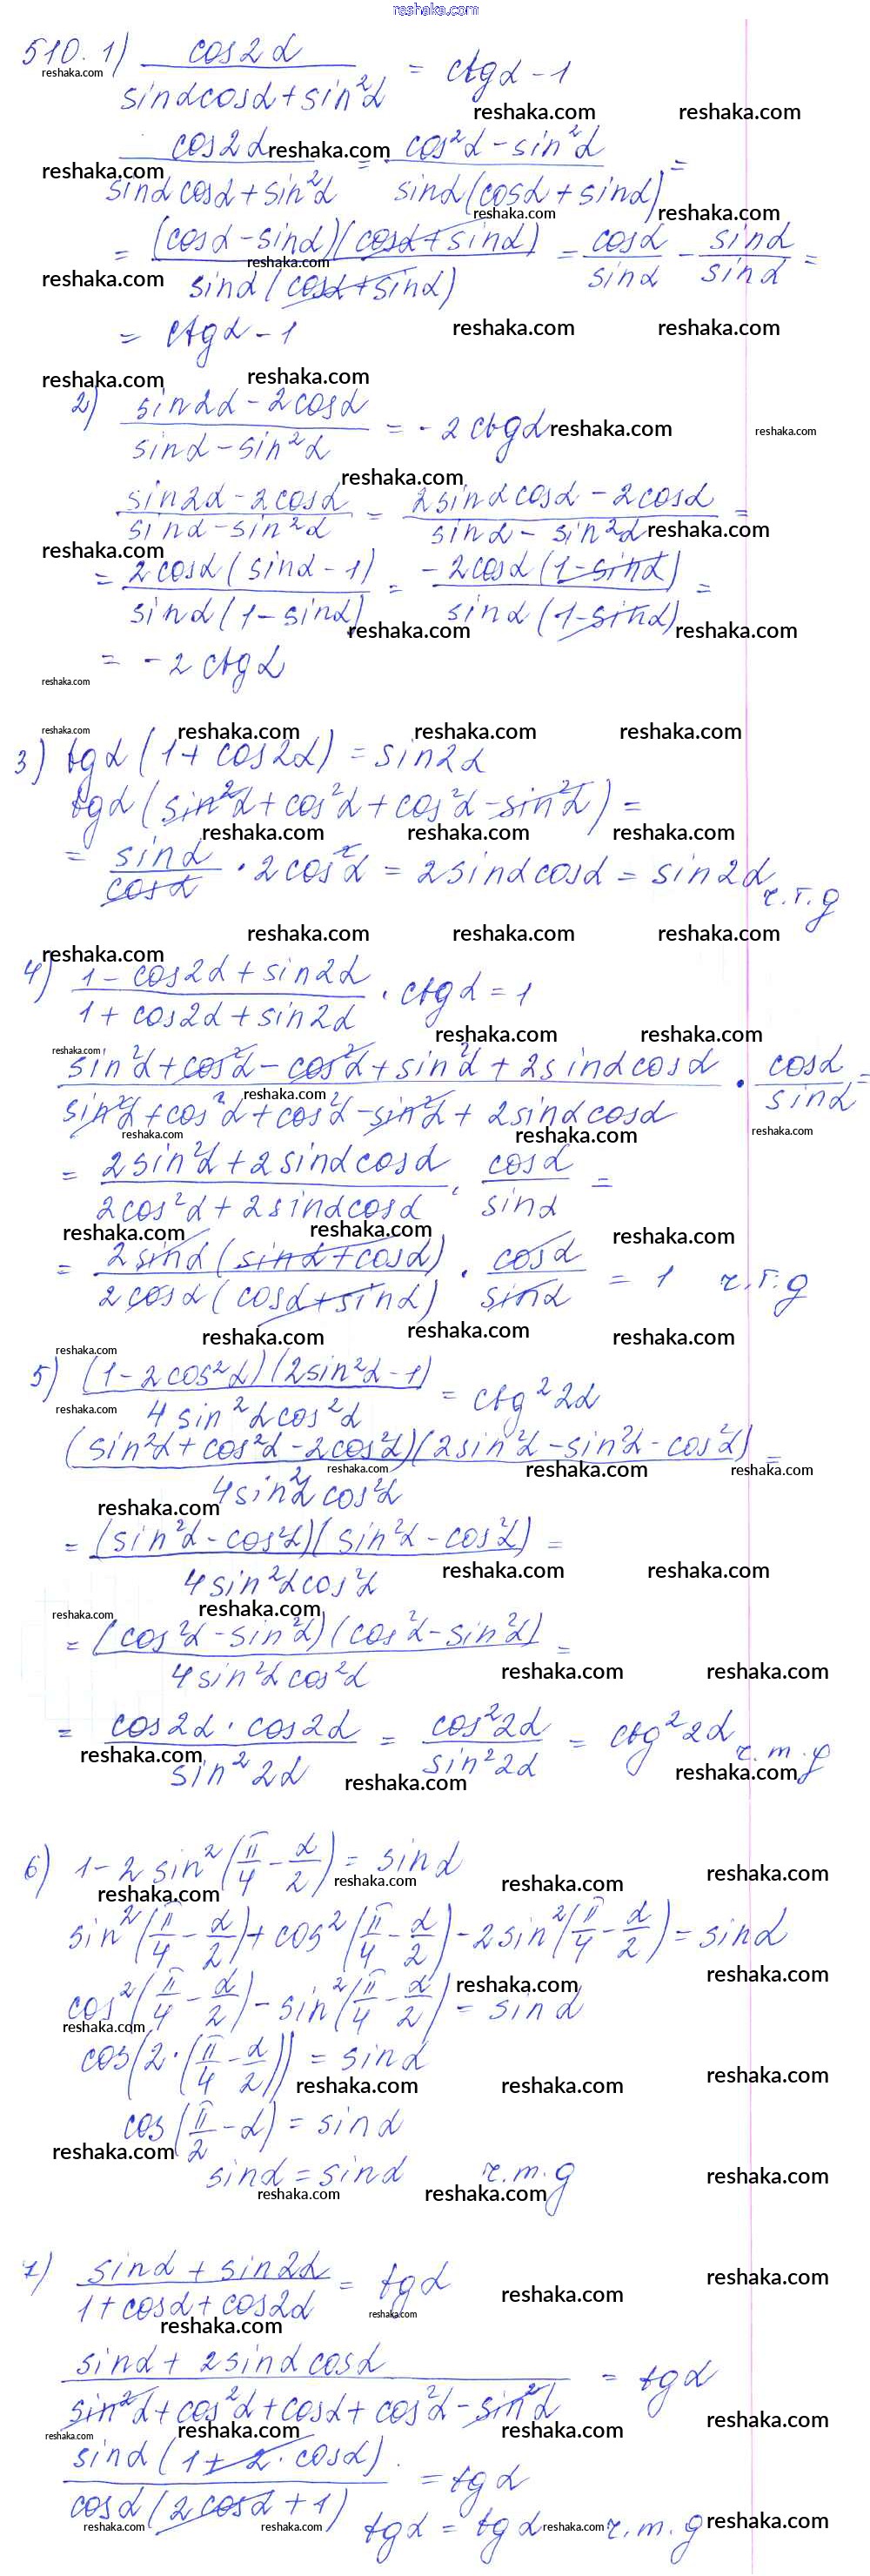 reshaka.com
510. 1) cos2α / (sinαcosα + sin²α) = ctgα - 1
cos2α / (sinαcosα + sin²α) = (cos²α - sin²α) / (sinα(cosα + sinα)) =
= (cosα - sinα)(cosα + sinα) / (sinα(cosα + sinα)) = cosα/sinα - sinα/sinα =
= ctgα - 1
2) (sin2α - 2cosα) / (sinα - sin²α) = -2ctgα
(sin2α - 2cosα) / (sinα - sin²α) = (2sinαcosα - 2cosα) / (sinα - sin²α) =
= 2cosα(sinα - 1) / (sinα(1 - sinα)) = -2cosα(1 - sinα) / (sinα(1 - sinα)) =
= -2ctgα
3) tgα(1 + cos2α) = sin2α
tgα(sin²α + cos²α + cos²α - sin²α) =
= sinα/cosα · 2cos²α = 2sinαcosα = sin2α ч.т.д
4) (1 - cos2α + sin2α) / (1 + cos2α + sin2α) · ctgα = 1
(sin²α + cos²α - cos²α + sin²α + 2sinαcosα) / (sin²α + cos²α + cos²α - sin²α + 2sinαcosα) · cosα/sinα =
= (2sin²α + 2sinαcosα) / (2cos²α + 2sinαcosα) · cosα/sinα =
= 2sinα(sinα + cosα) / (2cosα(cosα + sinα)) · cosα/sinα = 1 ч.т.д
5) (1 - 2cos²α)(2sin²α - 1) / (4sin²αcos²α) = ctg²2α
(sin²α + cos²α - 2cos²α)(2sin²α - sin²α - cos²α) / (4sin²αcos²α) =
= (sin²α - cos²α)(sin²α - cos²α) / (4sin²αcos²α) =
= (cos²α - sin²α)(cos²α - sin²α) / (4sin²αcos²α) =
= cos2α · cos2α / sin²2α = cos²2α / sin²2α = ctg²2α ч.т.д
6) 1 - 2sin²(π/4 - α/2) = sinα
sin²(π/4 - α/2) + cos²(π/4 - α/2) - 2sin²(π/4 - α/2) = sinα
cos²(π/4 - α/2) - sin²(π/4 - α/2) = sinα
cos(2·(π/4 - α/2)) = sinα
cos(π/2 - α) = sinα
sinα = sinα ч.т.д
7) (sinα + sin2α) / (1 + cosα + cos2α) = tgα
(sinα + 2sinαcosα) / (sin²α + cos²α + cosα + cos²α - sin²α) = tgα
sinα(1 + 2·cosα) / (cosα(2cosα + 1)) = tgα
tgα = tgα ч.т.д